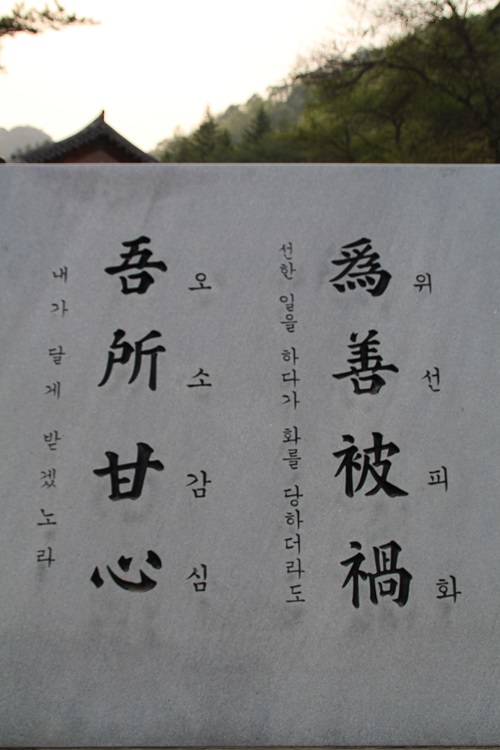 위선피화
爲善被禍
선한 일을 하다가 화를 당하더라도
오소감심
吾所甘心
내가 달게 받겠노라